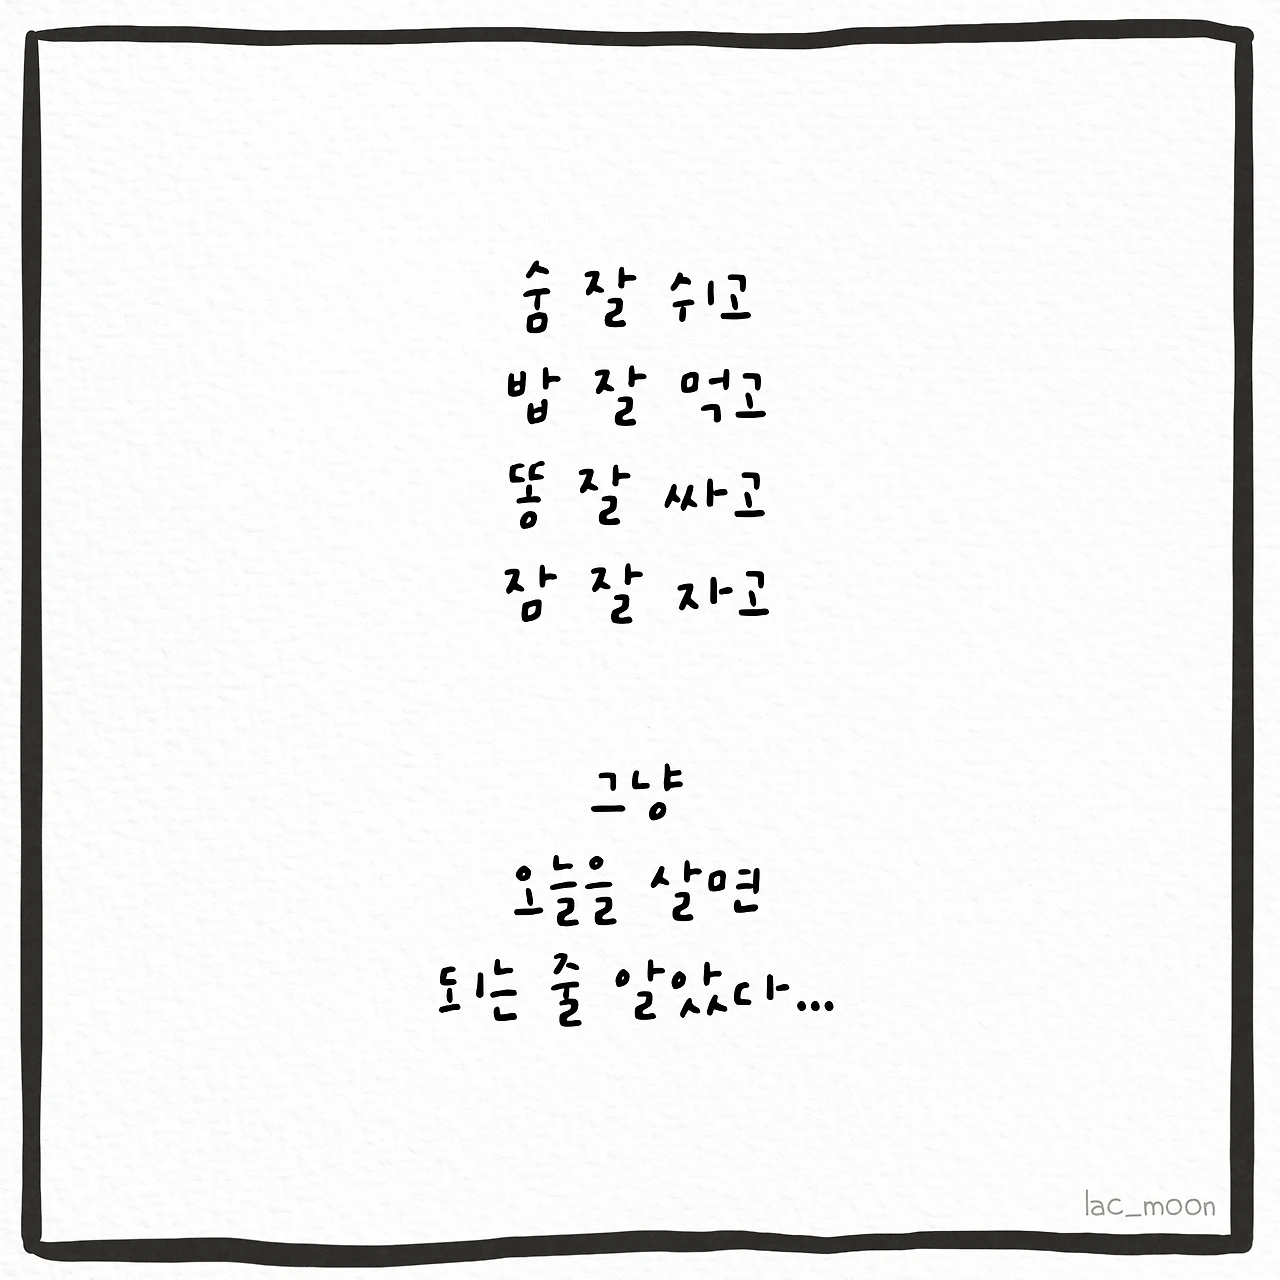 숨 잘 쉬고
밥 잘 먹고
똥 잘 싸고
잠 잘 자고
그냥
오늘을 살면
되는 줄 알았다...
lac_moon